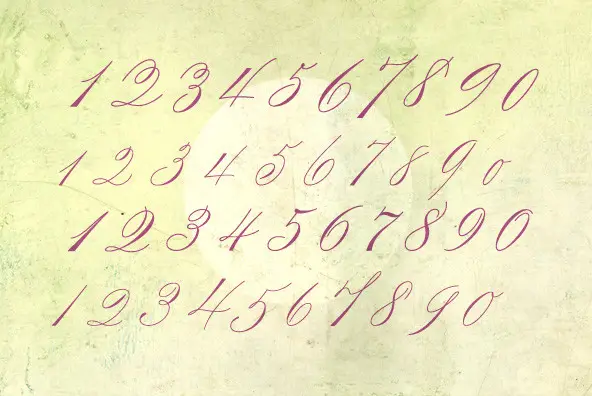 1 2 3 4 5 6 7 8 9 0
1 2 3 4 5 6 7 8 9 0
1 2 3 4 5 6 7 8 9 0
1 2 3 4 5 6 7 8 9 0